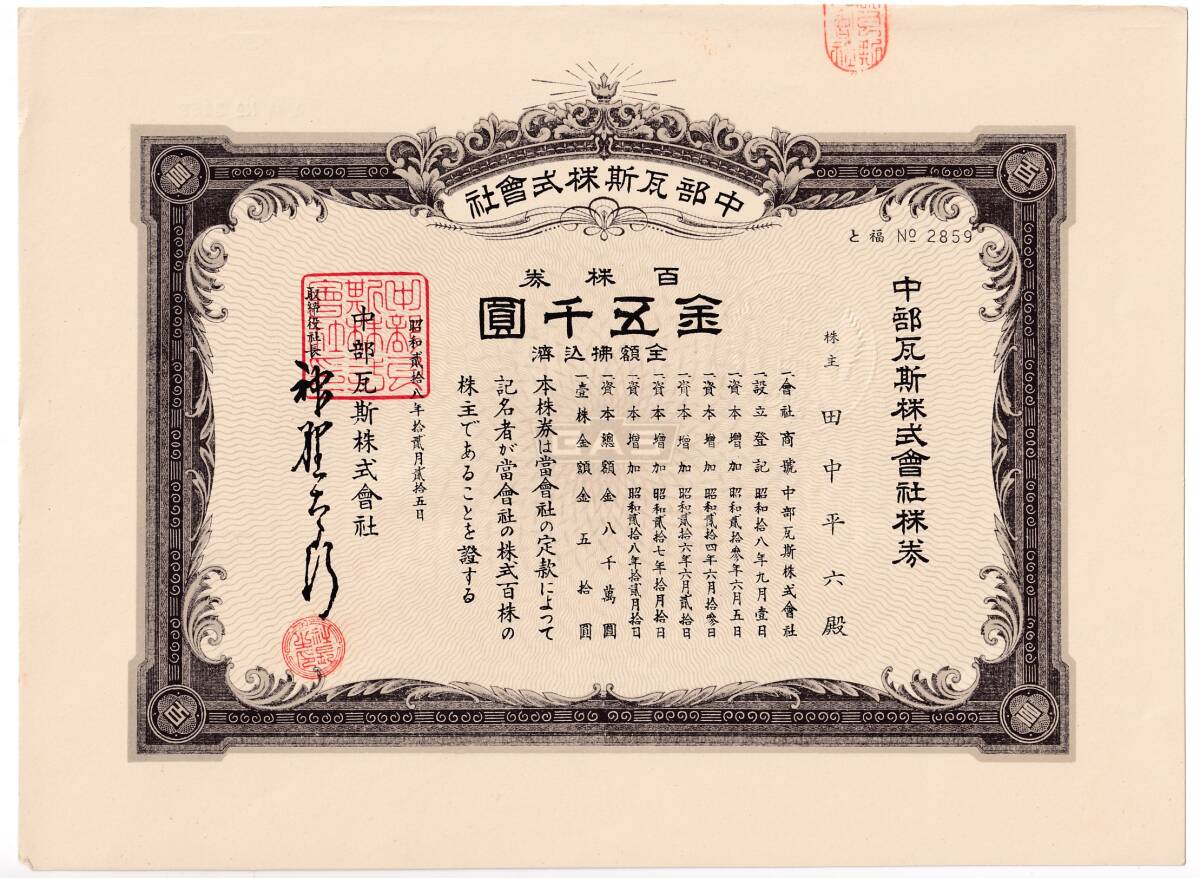 中部瓦斯株式會社
と福 № 2859
中部瓦斯株式會社株券
株主 田中平六殿
百株券
金五千圓
全額拂込濟
一、會社商號 中部瓦斯株式會社
一、設立登記 昭和拾八年九月壹日
一、資本增加 昭和貳拾參年六月五日
一、資本增加 昭和貳拾四年六月拾參日
一、資本增加 昭和貳拾六年六月貳拾日
一、資本增加 昭和貳拾七年拾月拾日
一、資本增加 昭和貳拾八年拾貳月拾日
一、資本總額金八千萬圓
一、壹株金額金五拾圓
本株券は當會社の定款によって
記名者が當會社の株式百株の
株主であることを證する
昭和貳拾八年拾貳月貳拾五日
中部瓦斯株式會社
取締役社長 神野太郎
GAS
百
百